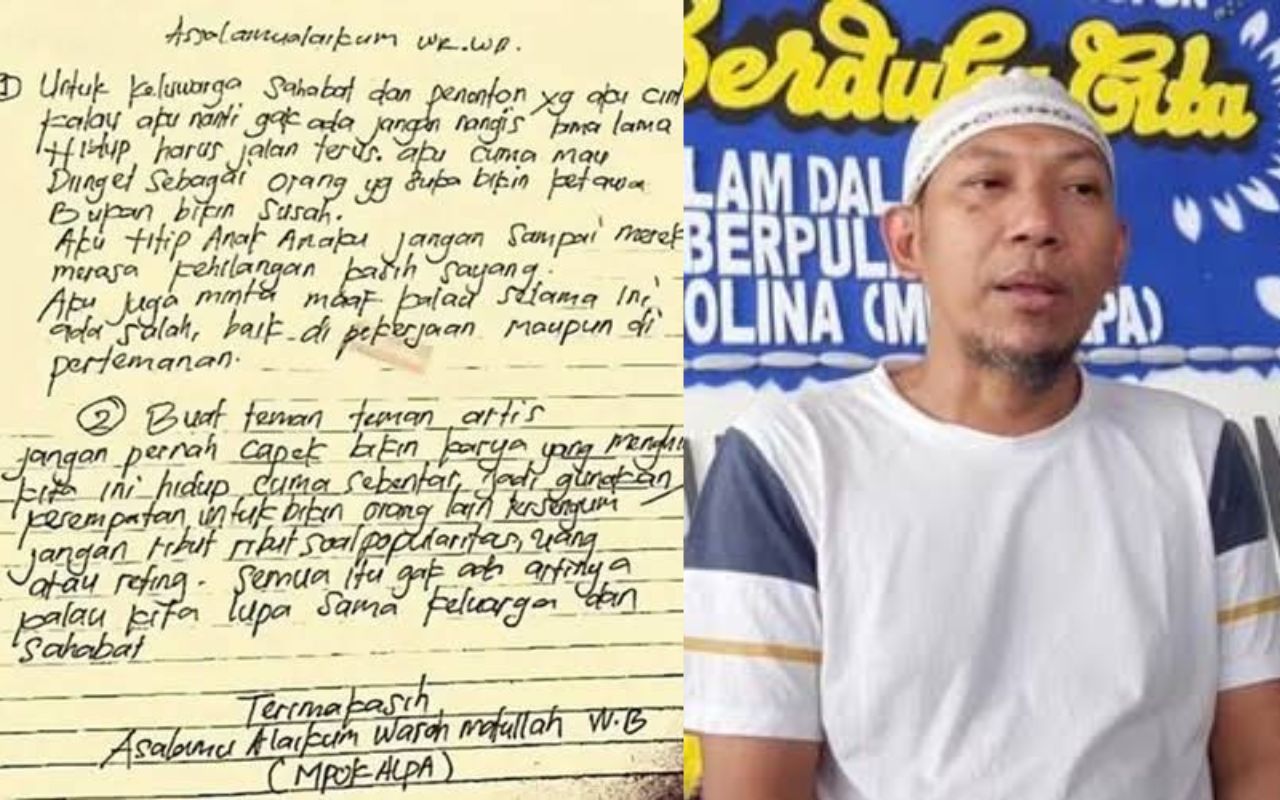 Assalamualaikum WR.WB.
① Untuk Keluwarga Sahabat dan penonton yg aku cin
kalau aku nanti gak ada jangan nangis lama lama
Hidup harus jalan terus. aku cuma mau
Diinget Sebagai orang yg suka bikin ketawa
Bukan bikin susah.
Aku titip Anak Anaku jangan sampai merek
merasa kehilangan kasih sayang.
Aku juga minta maaf kalau selama ini,
ada salah, baik di pekerjaan maupun di
pertemanan.
② Buat teman teman artis
jangan pernah capek bikin karya yang menghi
kita ini hidup cuma sebentar, jadi gunakan
kesempatan untuk bikin orang lain tersenyum
jangan ribut ribut soal popularitas, uang
atau reting. Semua itu gak ada artinya
kalau kita lupa sama keluarga dan
Sahabat
Terimakasih
Asalamu Alaikum Waroh Matullah W.B
(MPOK ALPA)
Berduka Cita
LAM DAL
BERPUL
OLINA (M PA)